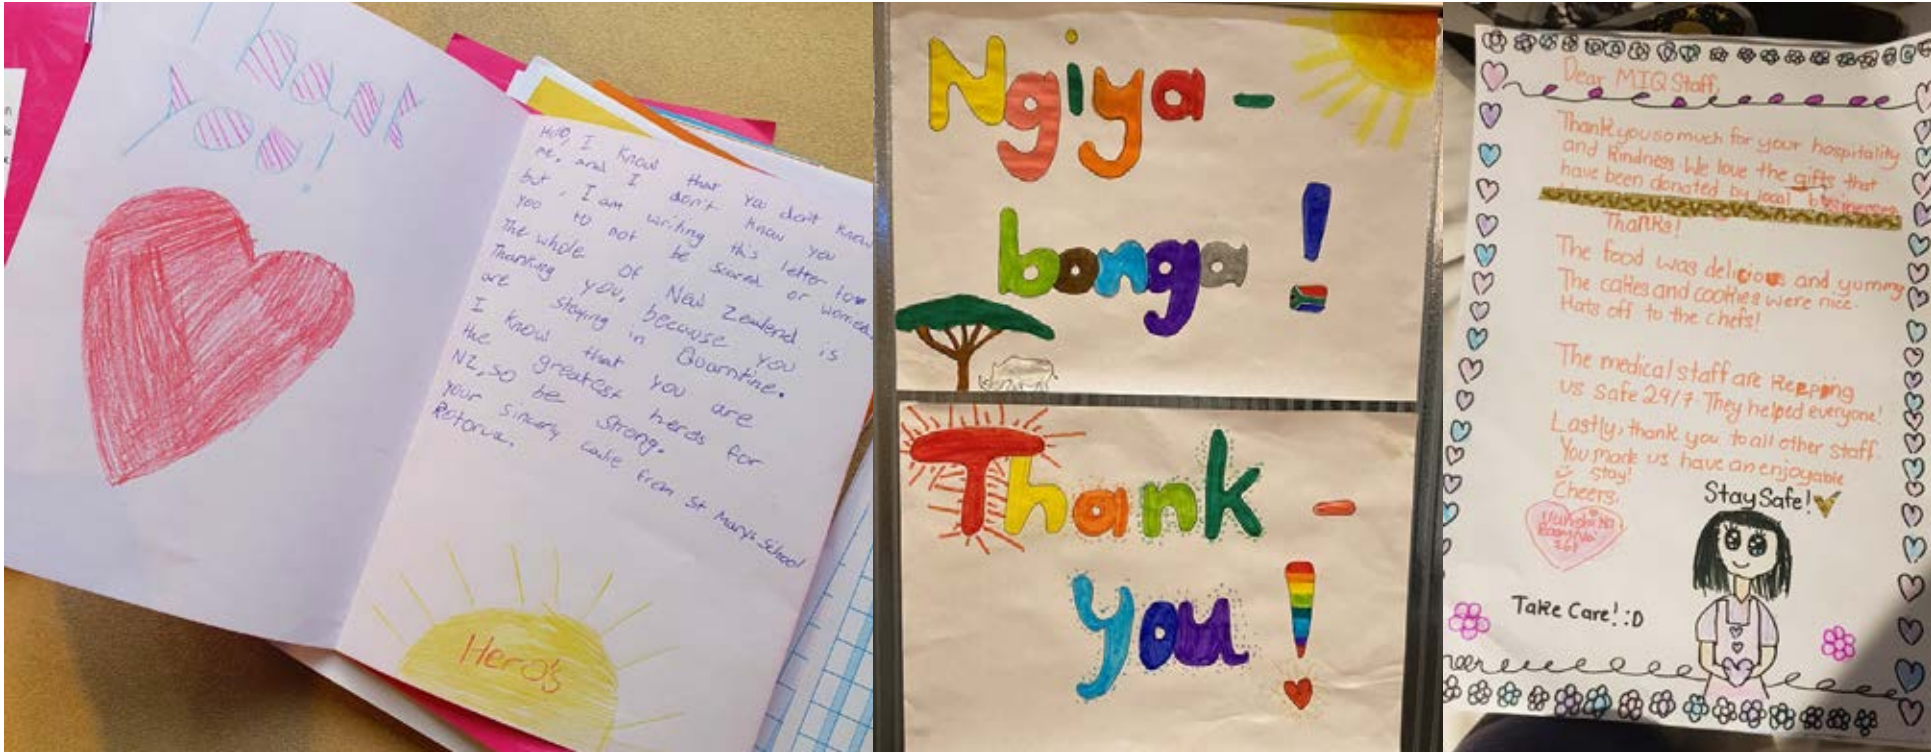 Thank
you!
Hello, I know that you don't know
me, and I don't know you
but, I am writing this letter for
you to not be scared or worried.
The whole of New Zealand is
Thanking you, because you
are staying in Quarntine.
I know that you are
the greatest heros for
NZ, so be strong.
your sincerly from St Mary's School
Rotorua.
Hero's
Ngiya-
bonga!
Thank-
you!
Dear MIQ Staff,
Thank you so much for your hospitality
and kindness We love the gifts that
have been donated by local businesses
Thanks!
The food was delicious and yummy
The cakes and cookies were nice.
Hats off to the chefs!
The medical staff are keeping
us safe 24/7 They helped everyone!
Lastly, thank you to all other staff.
You made us have an enjoyable
stay!
Cheers,
Room No
Stay Safe!
Take Care! :D